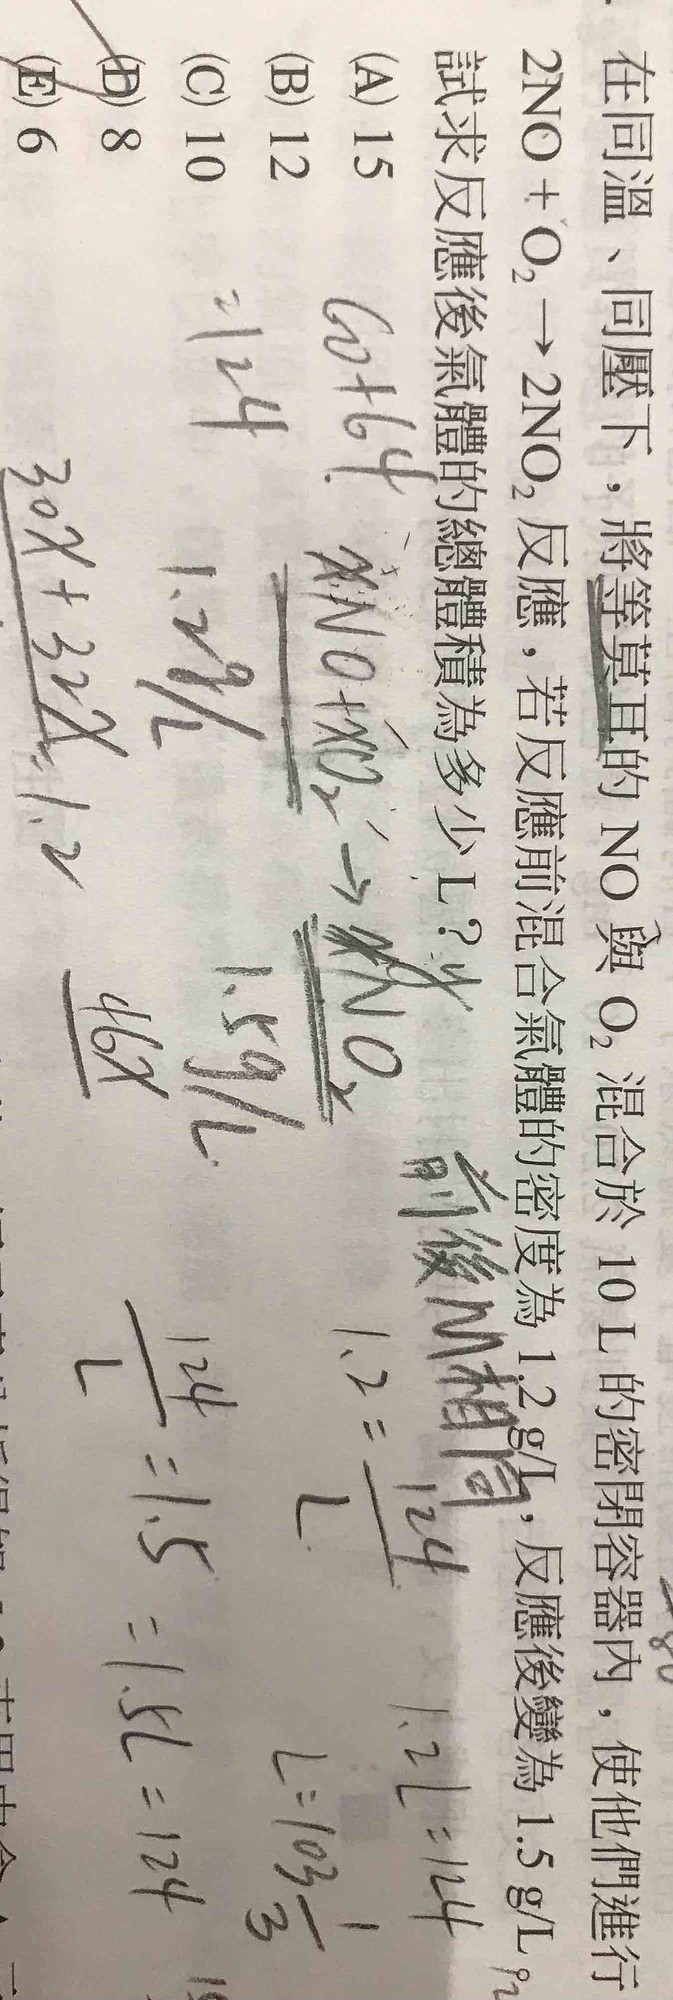 在同溫、同壓下，將等莫耳的 NO 與 O₂ 混合於 10 L 的密閉容器內，使他們進行
2NO + O₂ → 2NO₂ 反應，若反應前混合氣體的密度為 1.2 g/L，反應後變為 1.5 g/L，
試求反應後氣體的總體積為多少 L？
(A) 15
(B) 12
(C) 10
(D) 8
(E) 6
60+64
=124
xNO+xO₂→xNO₂
1.2g/L
1.5g/L
30x+32x=1.2
46x
前後M相同
1.2=124/L
1.2L=124
L=103 1/3
124/L=1.5
=1.5L=124